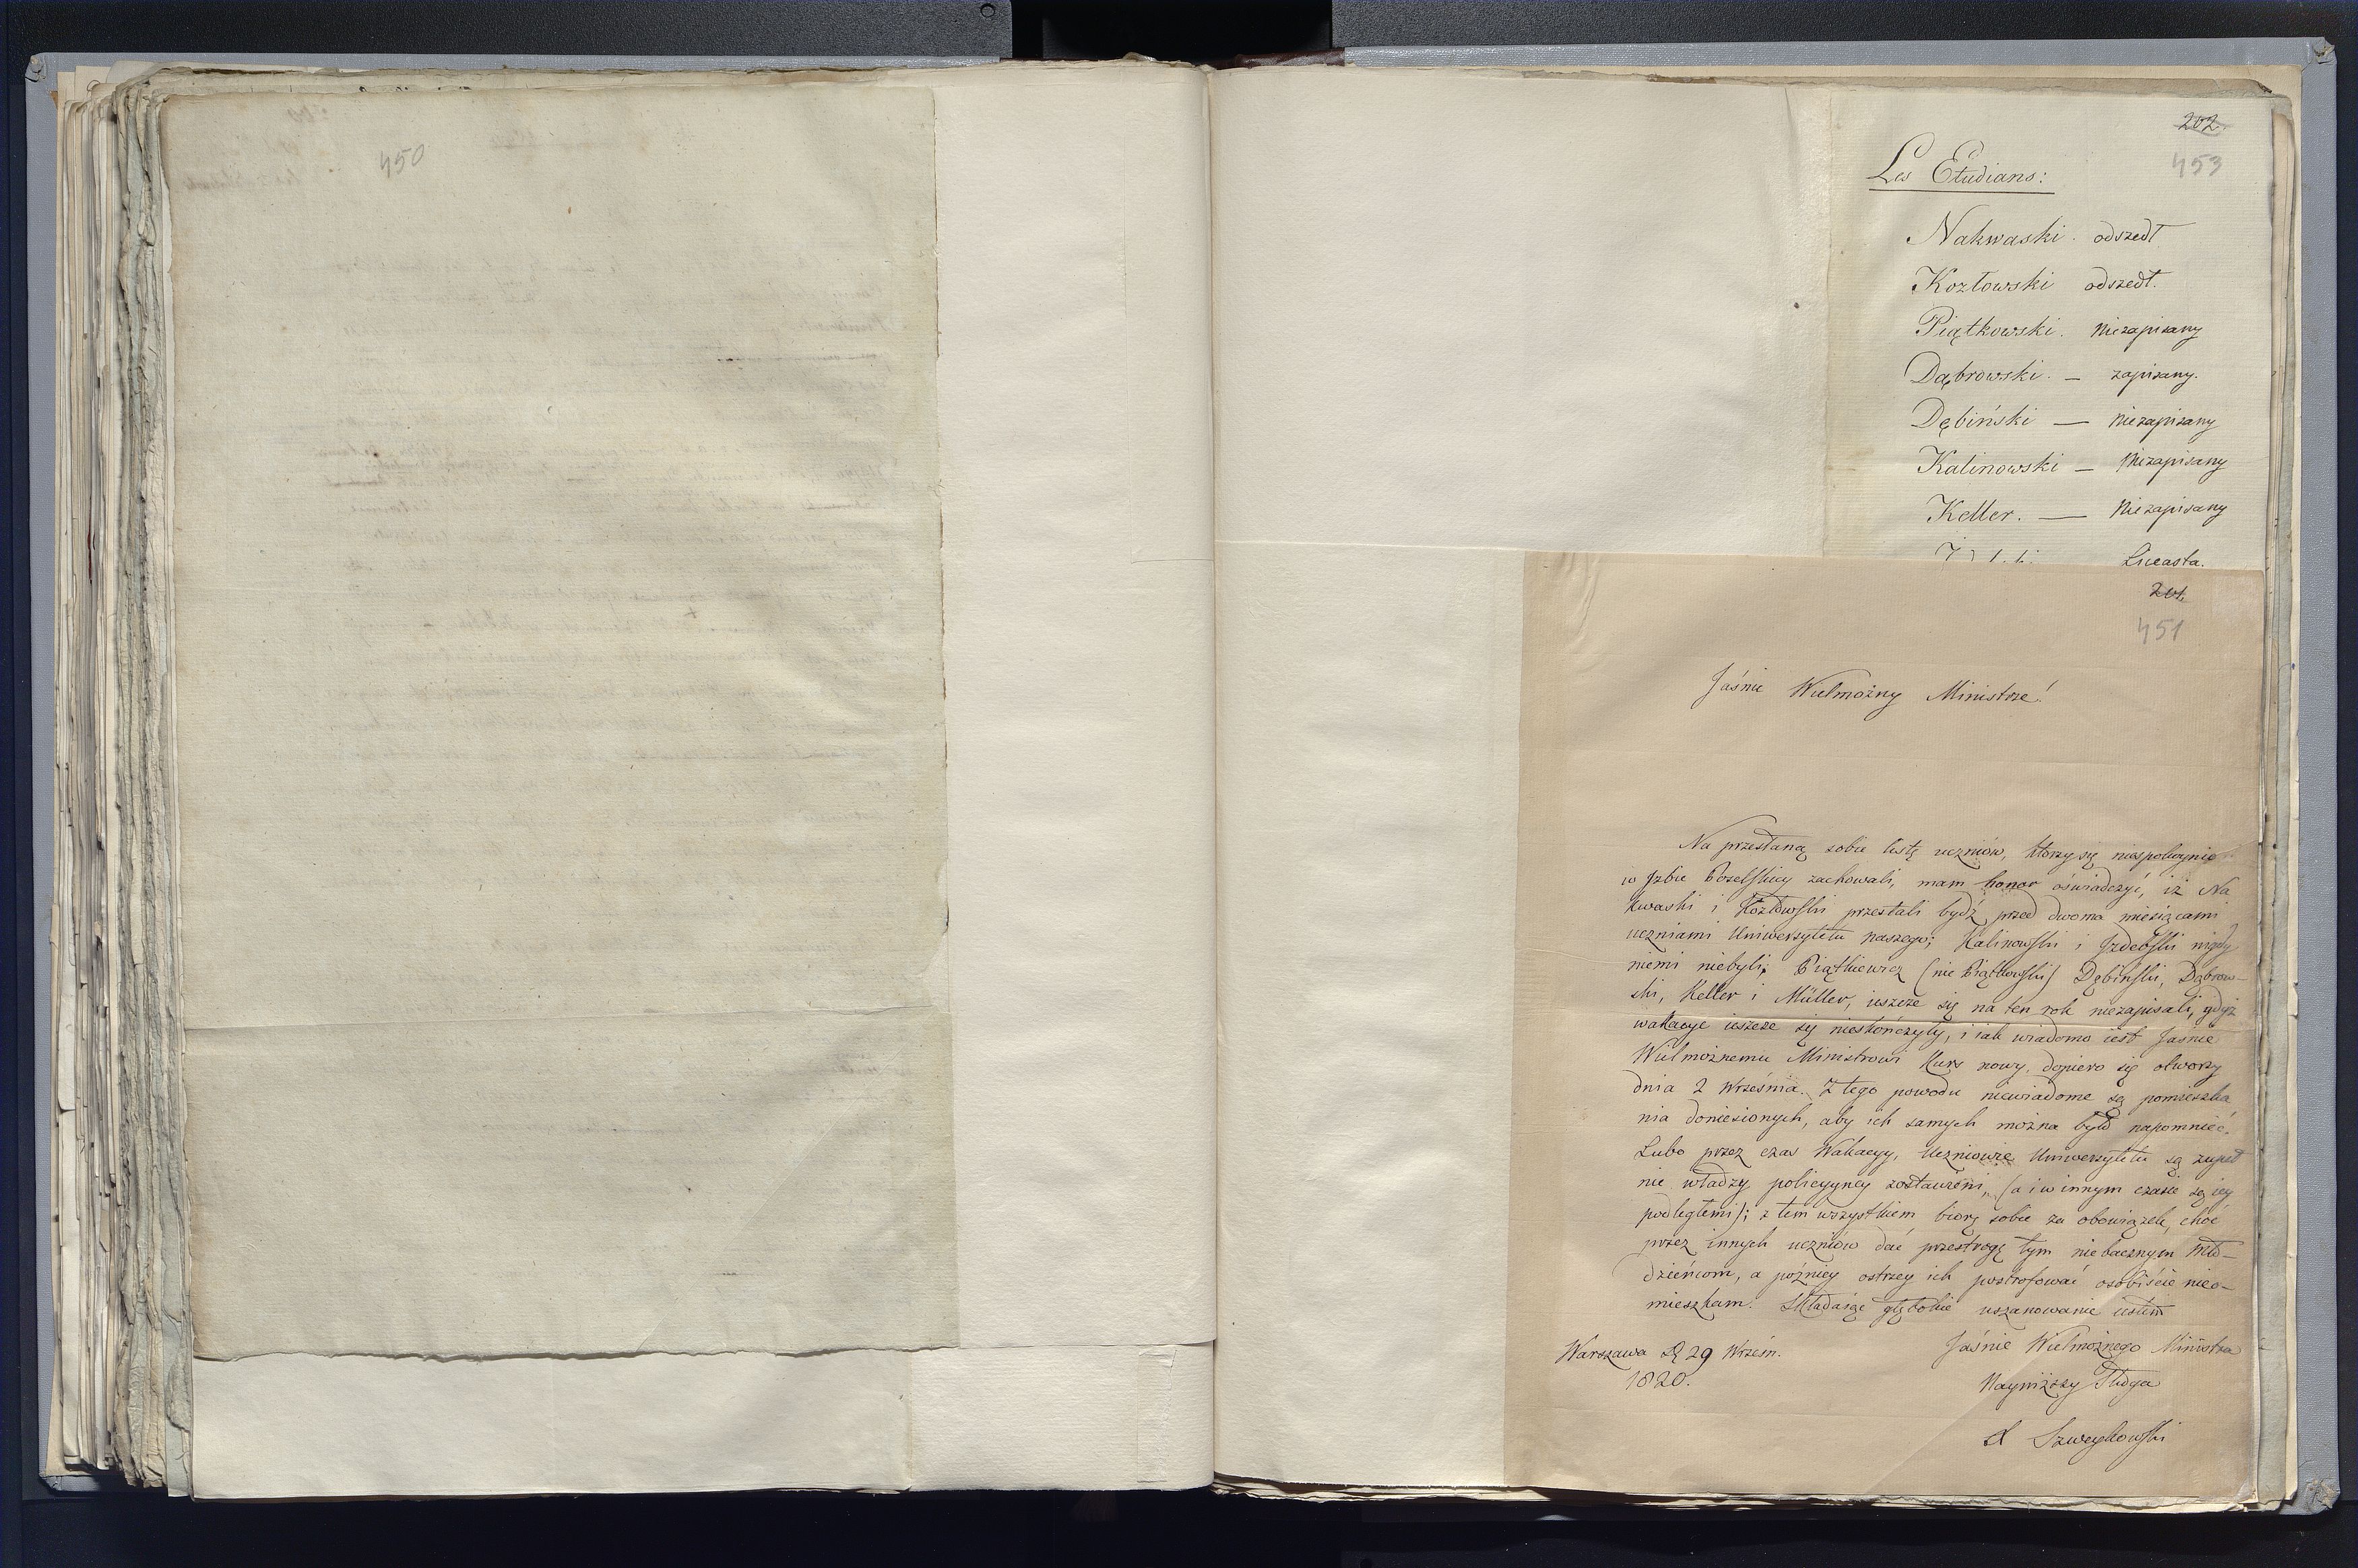 450
202.
453
Les Etudians:
Nakwaski. odszedł
Kozłowski odszedł.
Piątkowski. Niezapisany
Dąbrowski. — zapisany.
Dębiński — Niezapisany
Kalinowski — Niezapisany
Keller. — Niezapisany
Liceasta.
201.
451
Jaśnie Wielmożny Ministrze!
Na przesłaną sobie listę uczniów, którzy się niespokoynie
w Jzbie Poselskiey zachowali, mam honor oświadczyć, iż Na
kwaski i Kozłowski przestali bydź przed dwoma miesiącami
uczniami Uniwersytetu naszego; Kalinowski i Jzdebski nigdy
niemi niebyli; Piątkiewicz (nie Piątkowski) Dębiński, Dąbrow-
ski, Keller i Müller, ieszcze się na ten rok niezapisali, gdyż
wakacye ieszcze się nieskończyły, i iak wiadomo iest Jaśnie
Wielmożnemu Ministrowi Kurs nowy, dopiero się otworzy
dnia 2 Września. Z tego powodu niewiadome są pomieszka
nia doniesionych, aby ich samych można było napomnieć.
Lubo przez czas Wakacyy, Uczniowie Uniwersytetu są zupeł
nie władzy policyyney zostawieni, (a i w innym czasie są iey
podległemi); z tem wszystkiem biorę sobie za obowiązek, choć
przez innych uczniów dać przestrogę tym niebacznym Mło-
dzieńcom, a późniey ostrzey ich postrofować osobiście nieo-
mieszkam. Składaiąc głębokie uszanowanie iestem
Jaśnie Wielmożnego Ministra
Warszawa D 29 Wrześn.
1820.
Nayniższy Sługa
A Szweykowski